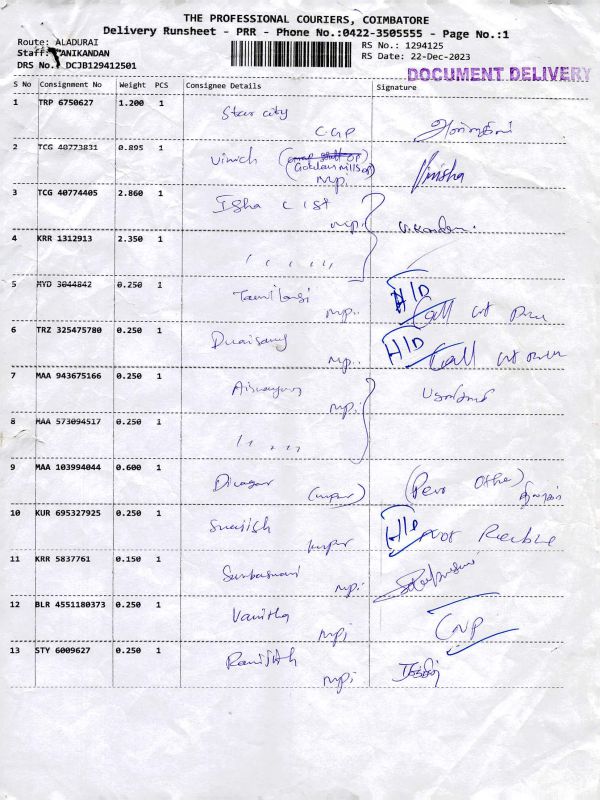 THE PROFESSIONAL COURIERS, COIMBATORE
Delivery Runsheet - PRR - Phone No.:0422-3505555 - Page No.:1
Route: ALADURAI
Staff: ANIKANDAN
DRS No.: DCJB129412501
RS No.: 1294125
RS Date: 22-Dec-2023
DOCUMENT DELIVERY
S No Consignment No Weight PCS Consignee Details Signature
1 TRP 6750627 1.200 1 Star city
C.G.P
2 TCG 40773831 0.895 1 Vinich
mp. Vinisha
3 TCG 40774405 2.860 1 Isha
mp.
4 KRR 1312913 2.350 1 , , , , ,
5 MYD 3044842 0.250 1 Tamilarasi H/D
mp.. Call
6 TRZ 325475780 0.250 1 Duraisamy H/D
mp.. Call
7 MAA 943675166 0.250 1
mp.
8 MAA 573094517 0.250 1 , , , ,
9 MAA 103994044 0.600 1 (mpur)
10 KUR 695327925 0.250 1 H/D not
mpur
11 KRR 5837761 0.150 1
mpi
12 BLR 4551180373 0.250 1 Vanitha
mpi CNP
13 STY 6009627 0.250 1 Ranjith
mpi